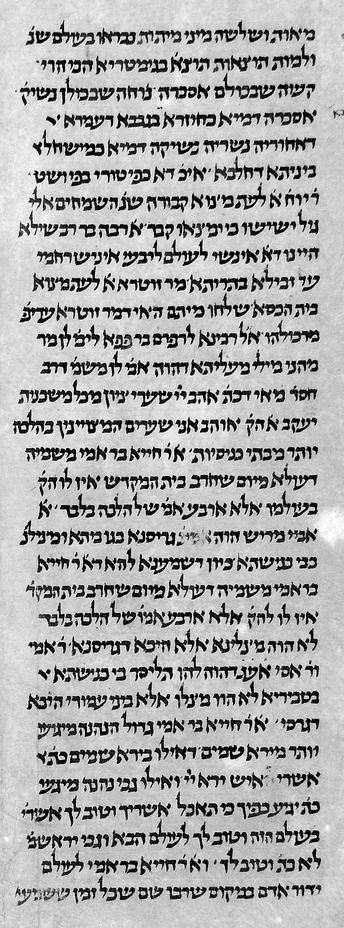 מ׳אות ושלשה מיני מיתות נבראו בעולם שנ׳
ולמות תוצאות תוצא׳ בגימטריא הכי הוי׳
קשה שבכולם אסכרה ניחה שבכולן נשיק׳
אסכרה דמיא כחיזרא בגבבא דעמרא
דאחוריה נשריה נשיקה דמיא כמישחל
ביניתא דחלבא ואיכ׳ דא׳ כפיטורי בפי ושט
ר׳ יוח׳ א׳ לעת מצוא זו קבורה שנ׳ השמחים אלי
גיל ישישו כי ימצאו קבר א׳ רבה בר רב שילא
היינו דא׳ אינשי לעולם ליבעי איניש רחמי
עד זיבולא בתריתא מר זוטרא א׳ לעת מצוא
בית הכסא שלחו מיתם הא דמר זוטרא עדיפ׳
מכולהו א׳ל רבינא לרפרם בר פפא לימ׳ לן מר
מהני מילי מעליתא דהוה אמ׳ לן משמ׳ דרב
חסד׳ מאי דכת׳ אהב יי׳ שערי ציון מכל משכנות
יעקב א׳ הק׳ אוהב אני שערים המצויינין בהלכה
יותר מבתי כנסיות א׳ר חייא בר אמי משמיה
דעולא מיום שחרב בית המקדש אין לו להק׳
בעולמו אלא ארבע אמ׳ של הלכה בלבד א׳
אביי מריש הוה אמינ׳ גריסנא בגו ביתא ומצלינ׳
בבי כנישתא כיון דשמענא להא דא׳ ר׳ חייא
בר אמי משמיה דעולא מיום שחרב בית המקד׳
אין לו להק׳ אלא ארבע אמו׳ של הלכה בלבד
לא הוה מצלינא אלא היכא דגריסנא ר׳ אמי
ור׳ אסי אע׳ג דהוה להון תליסר בי כנישתא
בטבריא לא הוו מצלו אלא ביני עמודי היכא
דגרסי א׳ר חייא בר אמי גדול הנהנה מיגיעו
יותר מירא שמים דאילו בירא שמים כת׳
אשרי איש ירא יי׳ ואילו גבי נהנה מיגיע
כת׳ יגיע כפיך כי תאכל אשריך וטוב לך אשרי׳
בעולם הזה וטוב לך לעולם הבא וגבי ירא שמ׳
לא כת׳ וטוב לך וא׳ר חייא בר אמי לעולם
ידור אדם במקום שרבו שם שכל זמן ששמעי